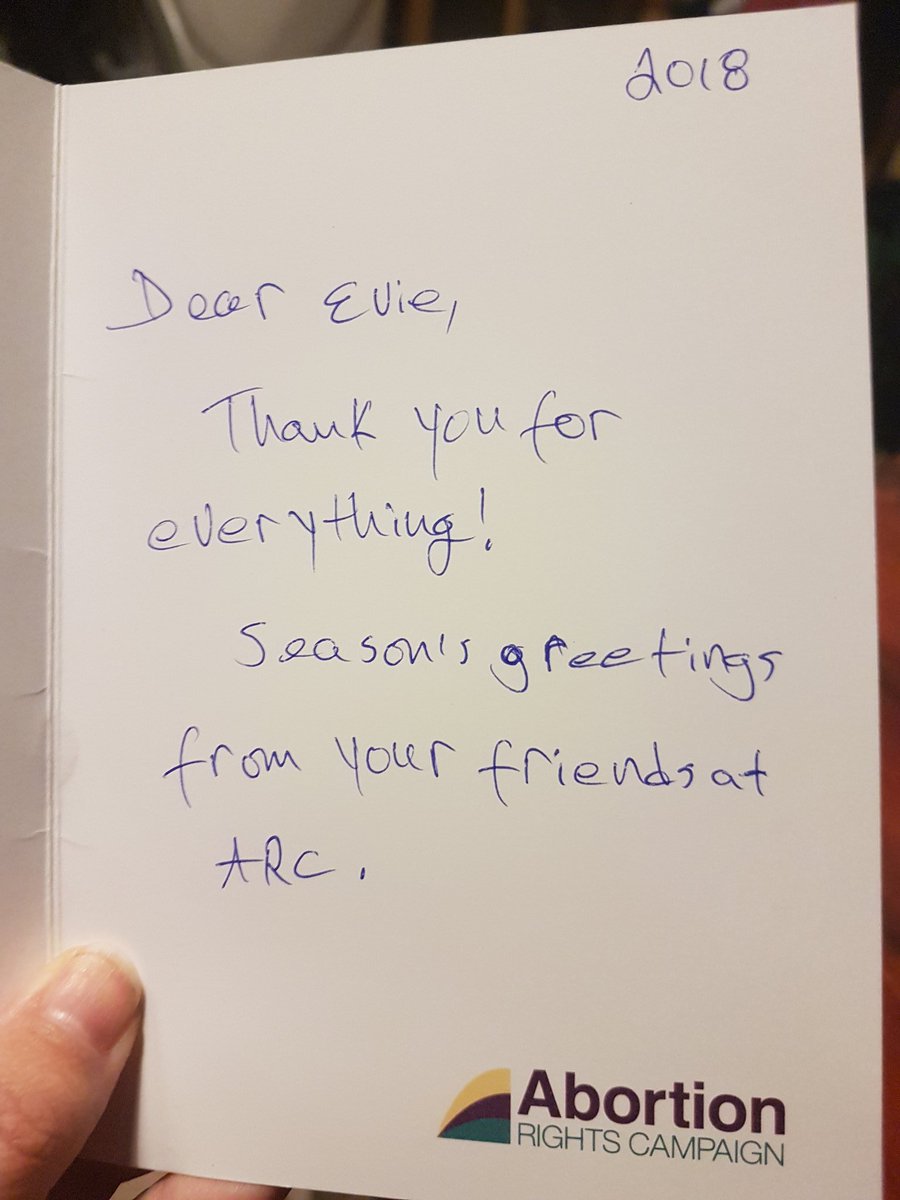 2018
Dear Evie,
Thank you for
everything!
Season's greetings
from your friends at
ARC.
Abortion
RIGHTS CAMPAIGN